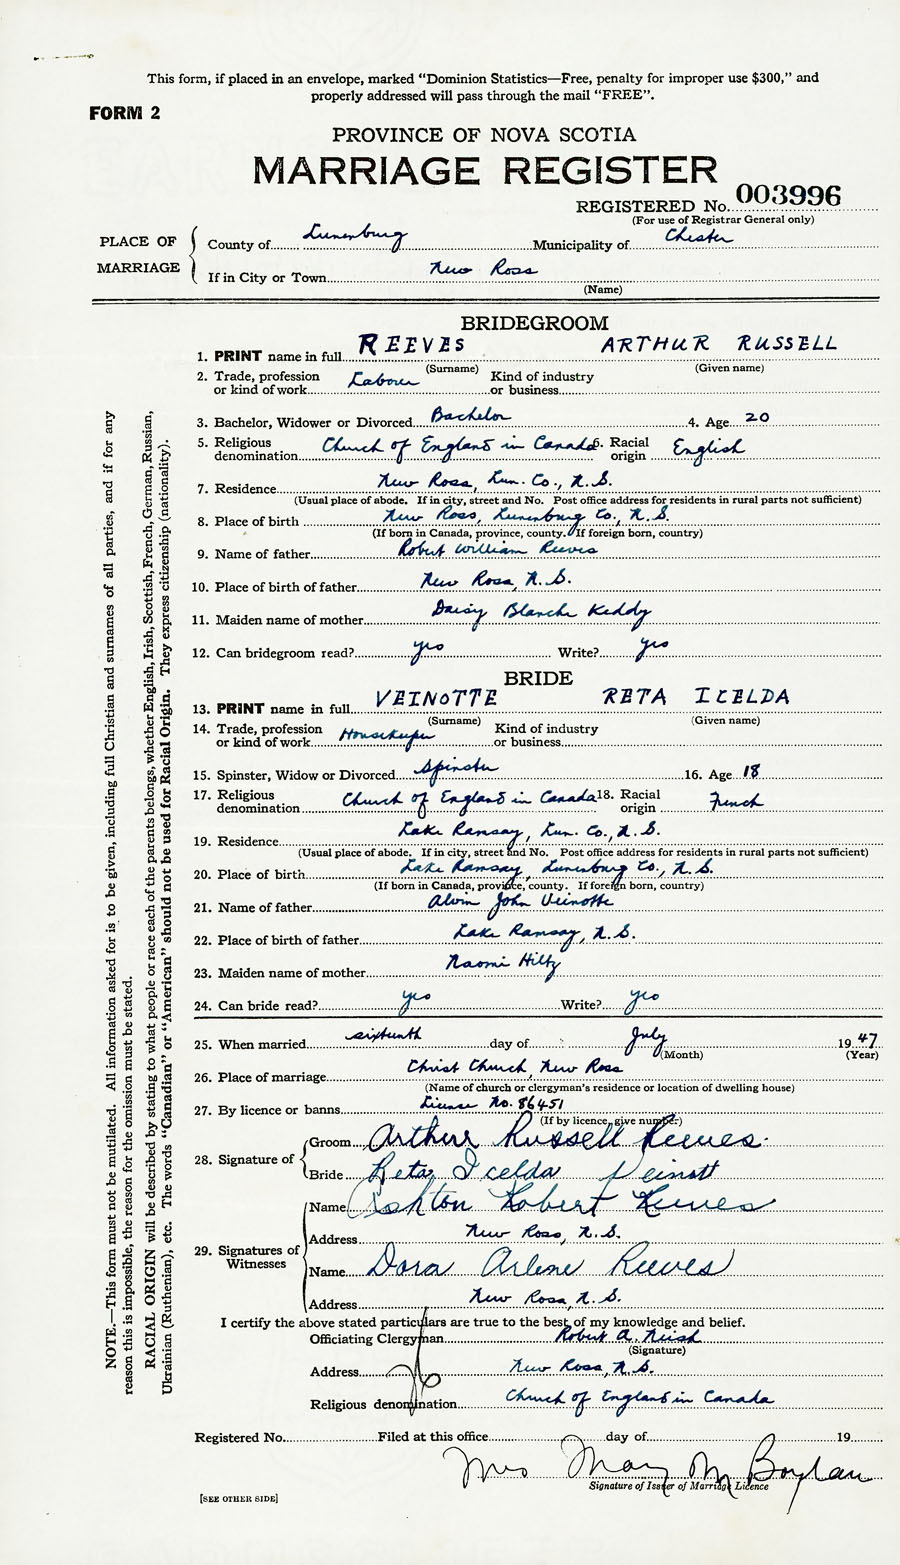 This form, if placed in an envelope, marked "Dominion Statistics—Free, penalty for improper use $300," and
properly addressed will pass through the mail "FREE".
FORM 2
PROVINCE OF NOVA SCOTIA
MARRIAGE REGISTER
REGISTERED No. 003996
(For use of Registrar General only)
PLACE OF MARRIAGE
County of Lunenburg Municipality of Chester
If in City or Town New Ross
(Name)
BRIDEGROOM
1. PRINT name in full REEVES ARTHUR RUSSELL
(Surname) (Given name)
2. Trade, profession or kind of work Labourer Kind of industry or business
3. Bachelor, Widower or Divorced Bachelor 4. Age 20
5. Religious denomination Church of England in Canada 6. Racial origin English
7. Residence New Ross, Lun. Co., N.S.
(Usual place of abode. If in city, street and No. Post office address for residents in rural parts not sufficient)
8. Place of birth New Ross, Lunenburg Co., N.S.
(If born in Canada, province, county. If foreign born, country)
9. Name of father Robert William Reeves
10. Place of birth of father New Ross, N.S.
11. Maiden name of mother Daisy Blanche Keddy
12. Can bridegroom read? yes Write? yes
BRIDE
13. PRINT name in full VEINOTTE RETA ICELDA
(Surname) (Given name)
14. Trade, profession or kind of work Housekeeper Kind of industry or business
15. Spinster, Widow or Divorced Spinster 16. Age 18
17. Religious denomination Church of England in Canada 18. Racial origin French
19. Residence Lake Ramsay, Lun. Co., N.S.
(Usual place of abode. If in city, street and No. Post office address for residents in rural parts not sufficient)
20. Place of birth Lake Ramsay, Lunenburg Co., N.S.
(If born in Canada, province, county. If foreign born, country)
21. Name of father Alvin John Veinotte
22. Place of birth of father Lake Ramsay, N.S.
23. Maiden name of mother Naomi Hiltz
24. Can bride read? yes Write? yes
25. When married sixteenth day of July 19 47
(Month) (Year)
26. Place of marriage Christ Church, New Ross
(Name of church or clergyman's residence or location of dwelling house)
27. By licence or banns License No. 86451
(If by licence, give number)
28. Signature of
Groom Arthur Russell Reeves.
Bride Reta Icelda Veinott
29. Signatures of Witnesses
Name Ashton Robert Reeves
Address New Ross, N.S.
Name Dora Arlene Reeves
Address New Ross, N.S.
I certify the above stated particulars are true to the best of my knowledge and belief.
Officiating Clergyman Robert A. Neish
(Signature)
Address New Ross, N.S.
Religious denomination Church of England in Canada
Registered No. Filed at this office day of 19
Mrs Mary M Boylan
Signature of Issuer of Marriage Licence
[SEE OTHER SIDE]
NOTE.—This form must not be mutilated. All information asked for is to be given, including full Christian and surnames of all parties, and if for any
reason this is impossible, the reason for the omission must be stated.
RACIAL ORIGIN will be described by stating to what people or race each of the parents belongs, whether English, Irish, Scottish, French, German, Russian,
Ukrainian (Ruthenian), etc. The words "Canadian" or "American" should not be used for Racial Origin. They express citizenship (nationality).